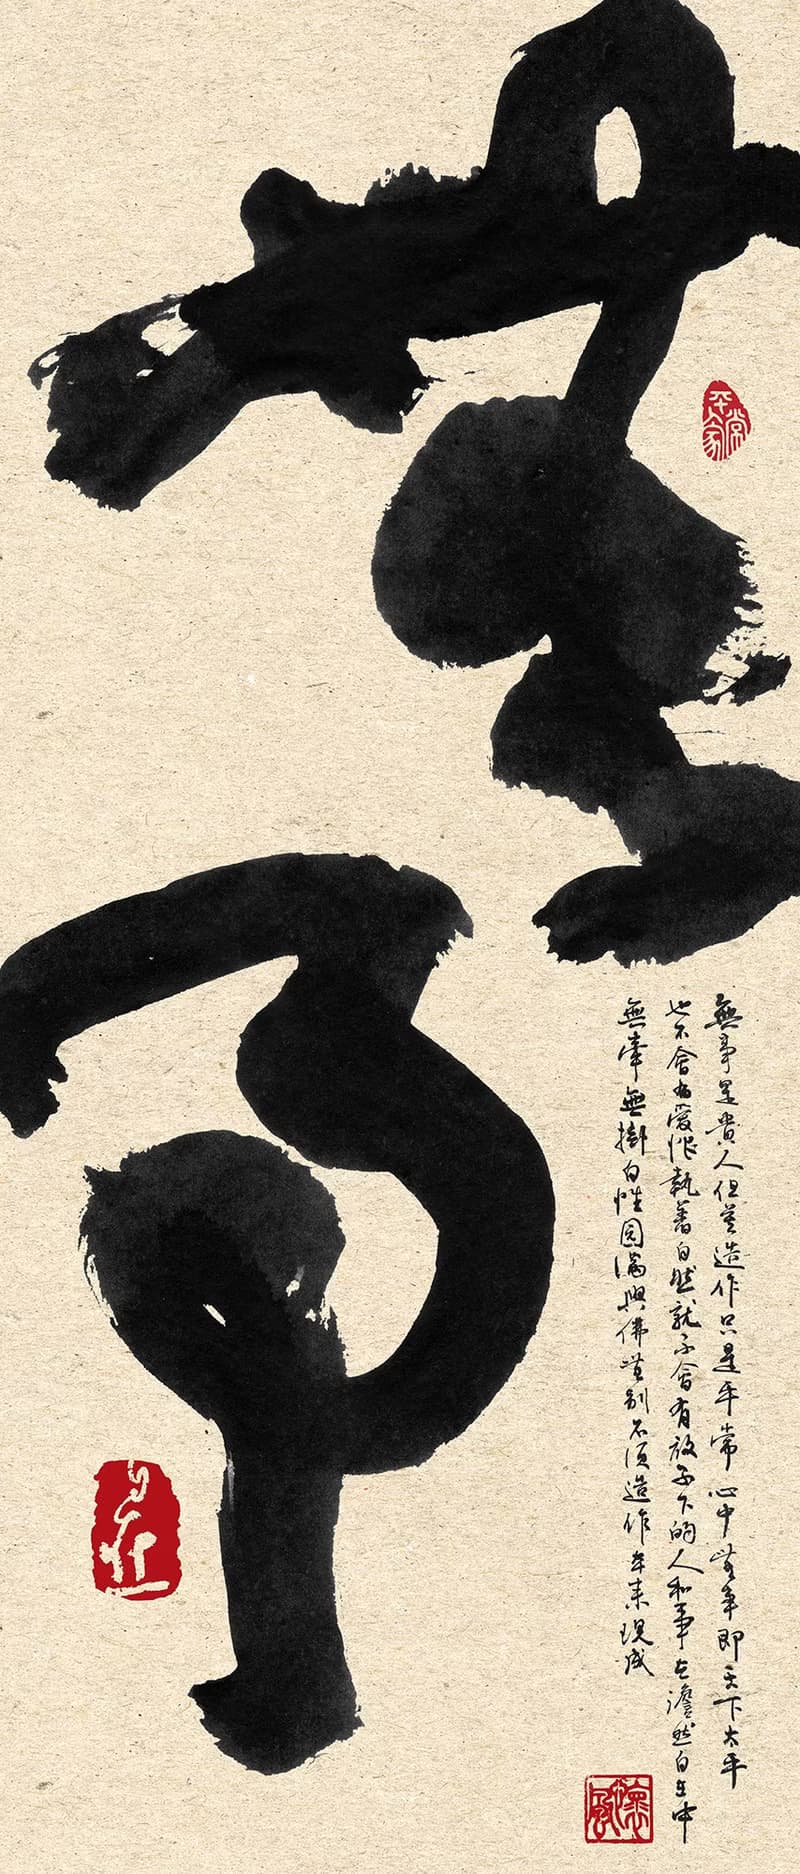 無事
平常家
無事是貴人但莫造作只是平常心中無事即天下太平
也不會為愛憎執著自然就不會有放不下的人和事在澹然自在中
無牽無掛自性圓滿與佛無別不須造作本來現成
自在
懷風